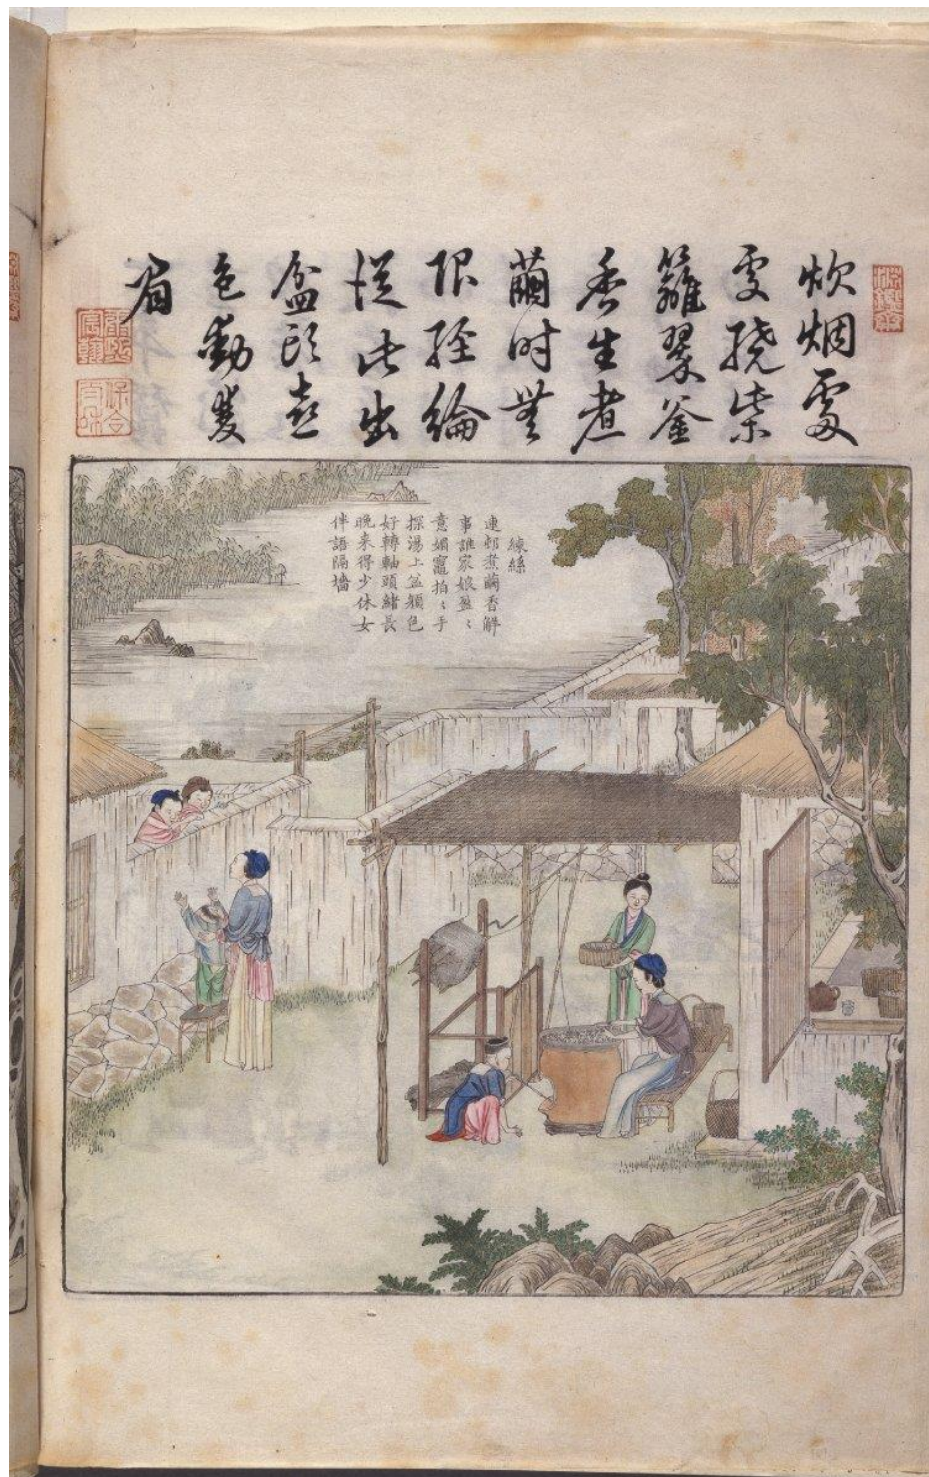 淵鑒齋
炊烟處
處繞柴
籬翠釜
香生煮
繭時無
限經綸
從此出
盆頭喜
色動雙
眉
康熙宸翰
保合太和
練絲
連邨煮繭香解
事誰家娘盈〻
意媚竈拍〻手
探湯上盆顏色
好轉軸頭緒長
晚来得少休女
伴語隔墻